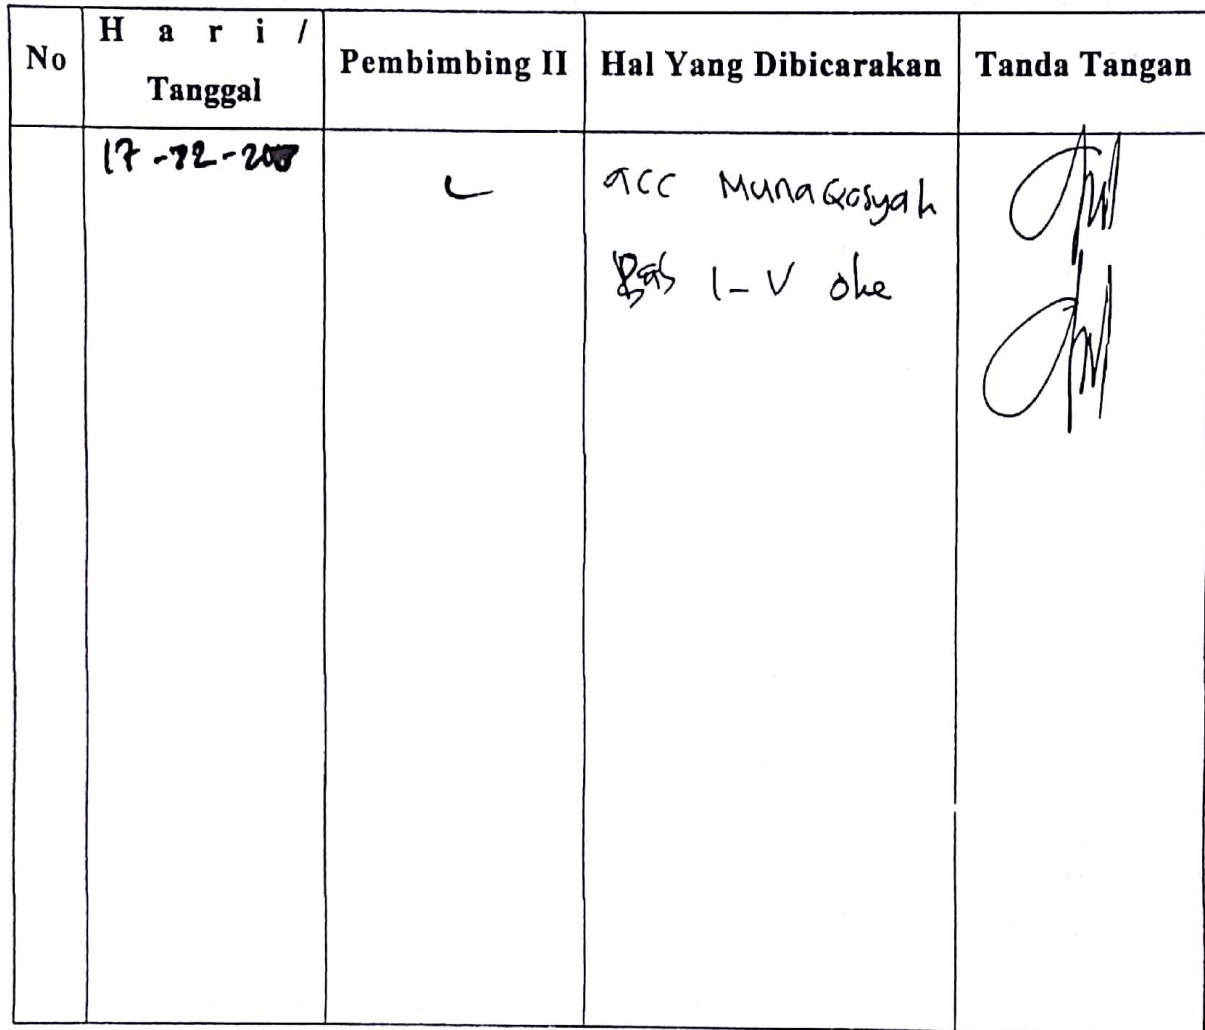 No
H a r i /
Tanggal
Pembimbing II
Hal Yang Dibicarakan
Tanda Tangan
17-12-
acc Munaqosyah
Bab I-V oke